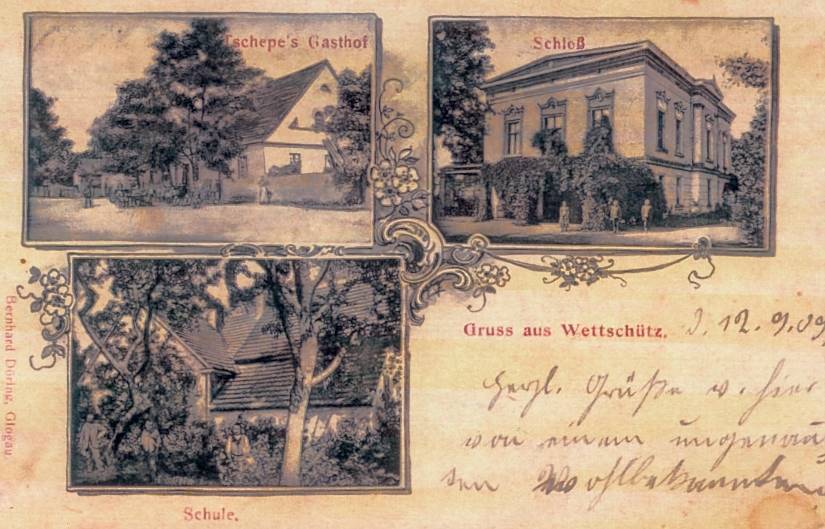 Tschepe's Gasthof
Schloß
Bernhard Döring, Glogau.
Gruss aus Wettschütz. d. 12. 9. 09
Herzl. Grüße v. hier
von einem ungenan
ten Wohlbekannten
Schule.